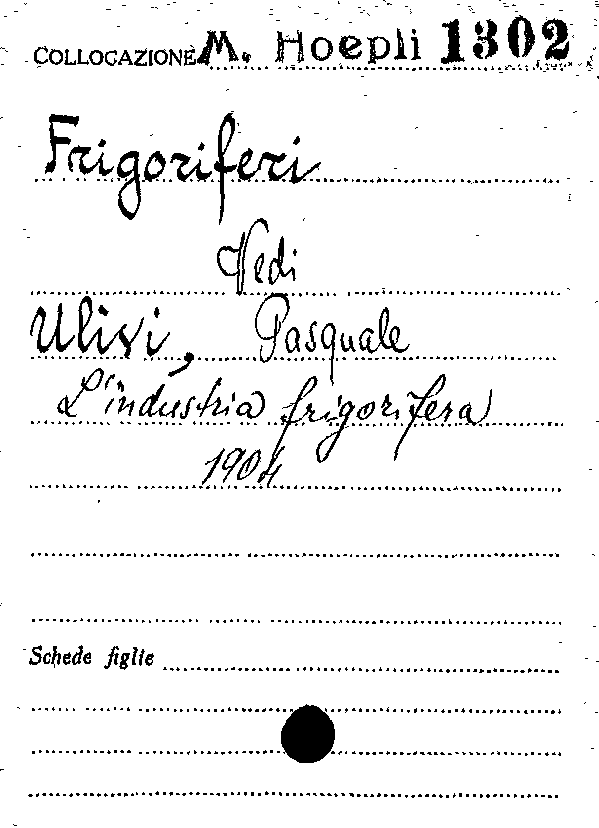 COLLOCAZIONE M. Hoepli 1302
Frigoriferi
Vedi
Ulivi, Pasquale
L'industria frigorifera
1904
Schede figlie